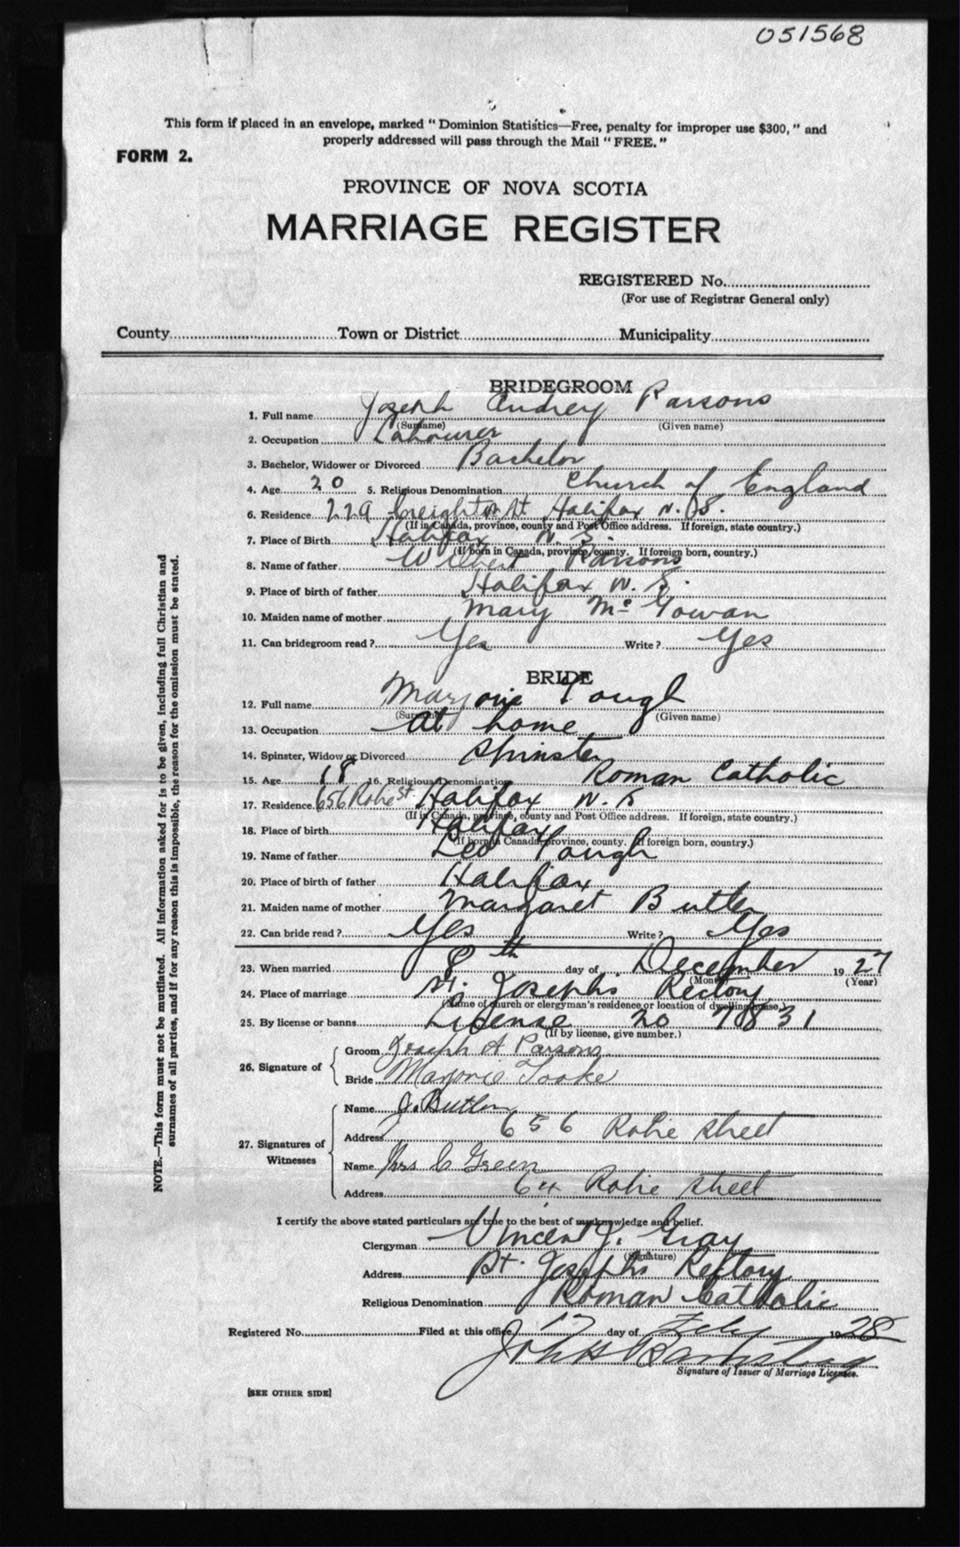 051568
This form if placed in an envelope, marked " Dominion Statistics—Free, penalty for improper use $300, " and
properly addressed will pass through the Mail " FREE. "
FORM 2.
PROVINCE OF NOVA SCOTIA
MARRIAGE REGISTER
REGISTERED No.
(For use of Registrar General only)
County Town or District Municipality
BRIDEGROOM
1. Full name Joseph Audrey Parsons
(Surname) (Given name)
2. Occupation Labourer
3. Bachelor, Widower or Divorced Bachelor
4. Age 20 5. Religious Denomination Church of England
6. Residence 229 Creighton St Halifax N.S.
(If in Canada, province, county and Post Office address. If foreign, state country.)
7. Place of Birth Halifax N. S.
(If born in Canada, province, county. If foreign born, country.)
8. Name of father Wilbert Parsons
9. Place of birth of father Halifax N. S.
10. Maiden name of mother Mary McGowan
11. Can bridegroom read ? Yes Write ? Yes
BRIDE
12. Full name Marjorie Tough
(Surname) (Given name)
13. Occupation At home
14. Spinster, Widow or Divorced Spinster
15. Age 18 16. Religious Denomination Roman Catholic
17. Residence 656 Robie St. Halifax N. S
(If in Canada, province, county and Post Office address. If foreign, state country.)
18. Place of birth Halifax
(If born in Canada, province, county. If foreign born, country.)
19. Name of father Leo Tough
20. Place of birth of father Halifax
21. Maiden name of mother Margaret Butler
22. Can bride read ? Yes Write ? Yes
23. When married 8th day of December 1927
(Month) (Year)
24. Place of marriage St. Josephs Rectory
(Name of church or clergyman's residence or location of dwelling house.)
25. By license or banns License 20 7831
(If by license, give number.)
26. Signature of
Groom Joseph A Parsons
Bride Marjorie Tooke
27. Signatures of Witnesses
Name J. Butler
Address 656 Robie Street
Name Mrs C Green
Address Robie Street
I certify the above stated particulars are true to the best of my knowledge and belief.
Clergyman Vincent J. Gray
(Signature)
Address St. Josephs Rectory
Religious Denomination Roman Catholic
Registered No. Filed at this office day of Feb 1928
Signature of Issuer of Marriage Licenses.
[SEE OTHER SIDE]
NOTE.—This form must not be mutilated. All information asked for is to be given, including full Christian and
surnames of all parties, and if for any reason this is impossible, the reason for the omission must be stated.